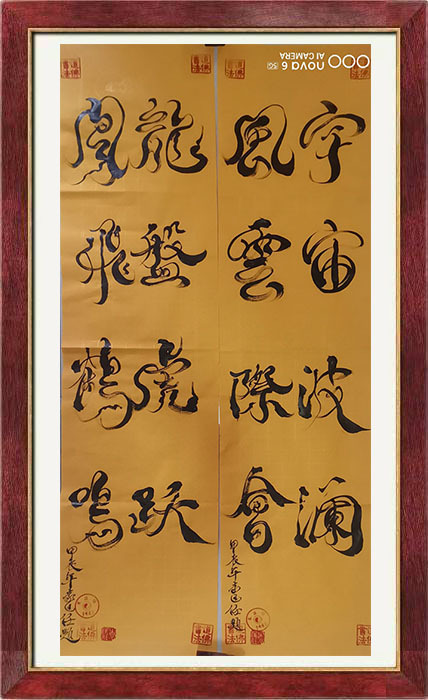 宇宙波澜
風雲際會
甲辰年
題
龍盤虎跃
凰飛鶴鳴
甲辰年
題
nova 6 5G
AI CAMERA